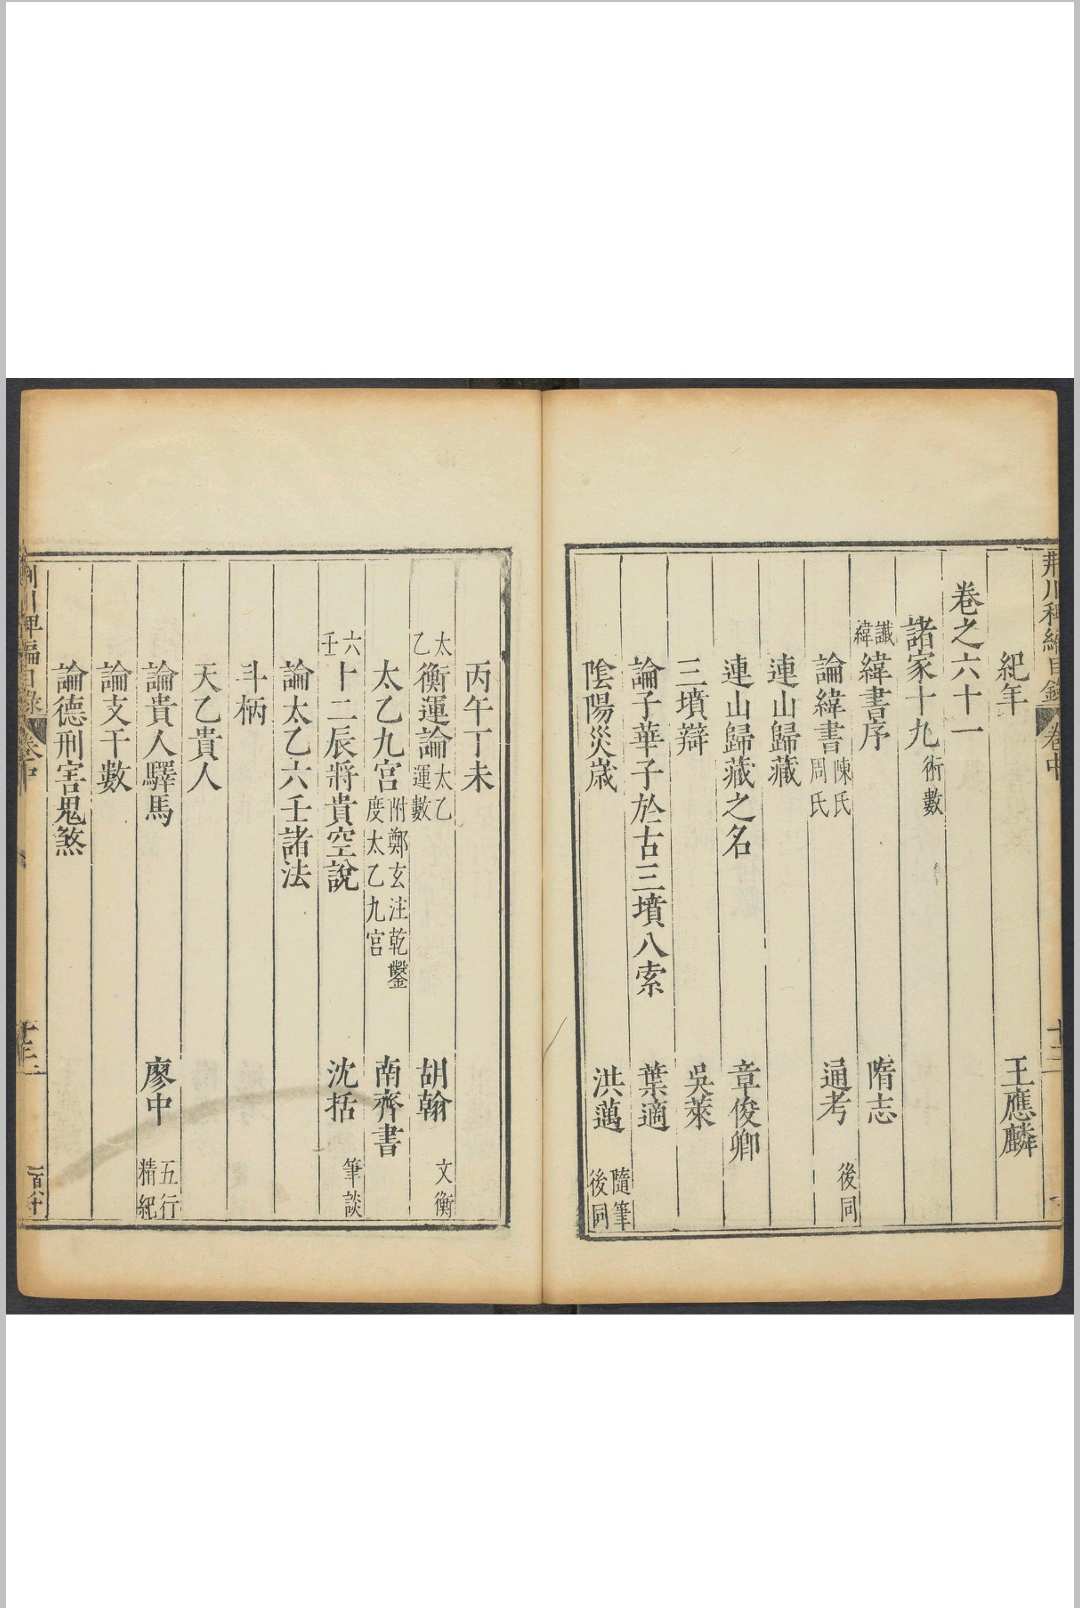 荆川稗編目錄 卷中 十二
紀年 王應麟
卷之六十一
諸家十九 術數
讖緯 緯書序 隋志
論緯書 陳氏周氏 通考 後同
連山歸藏
連山歸藏之名 章俊卿
三墳辯 吳萊
論子華子於古三墳八索 葉適
陰陽災歲 洪邁 隨筆後同
丙午丁未
太乙 衡運論 太乙運數 胡翰 文衡
太乙九宮 附鄭玄注乾鑿度太乙九宮 南齊書
六壬 十二辰將貴空說 沈括 筆談
論太乙六壬諸法
斗柄
天乙貴人
論貴人驛馬 廖中 五行精紀
論支干數
論德刑害鬼煞
荆川稗編目錄 卷中